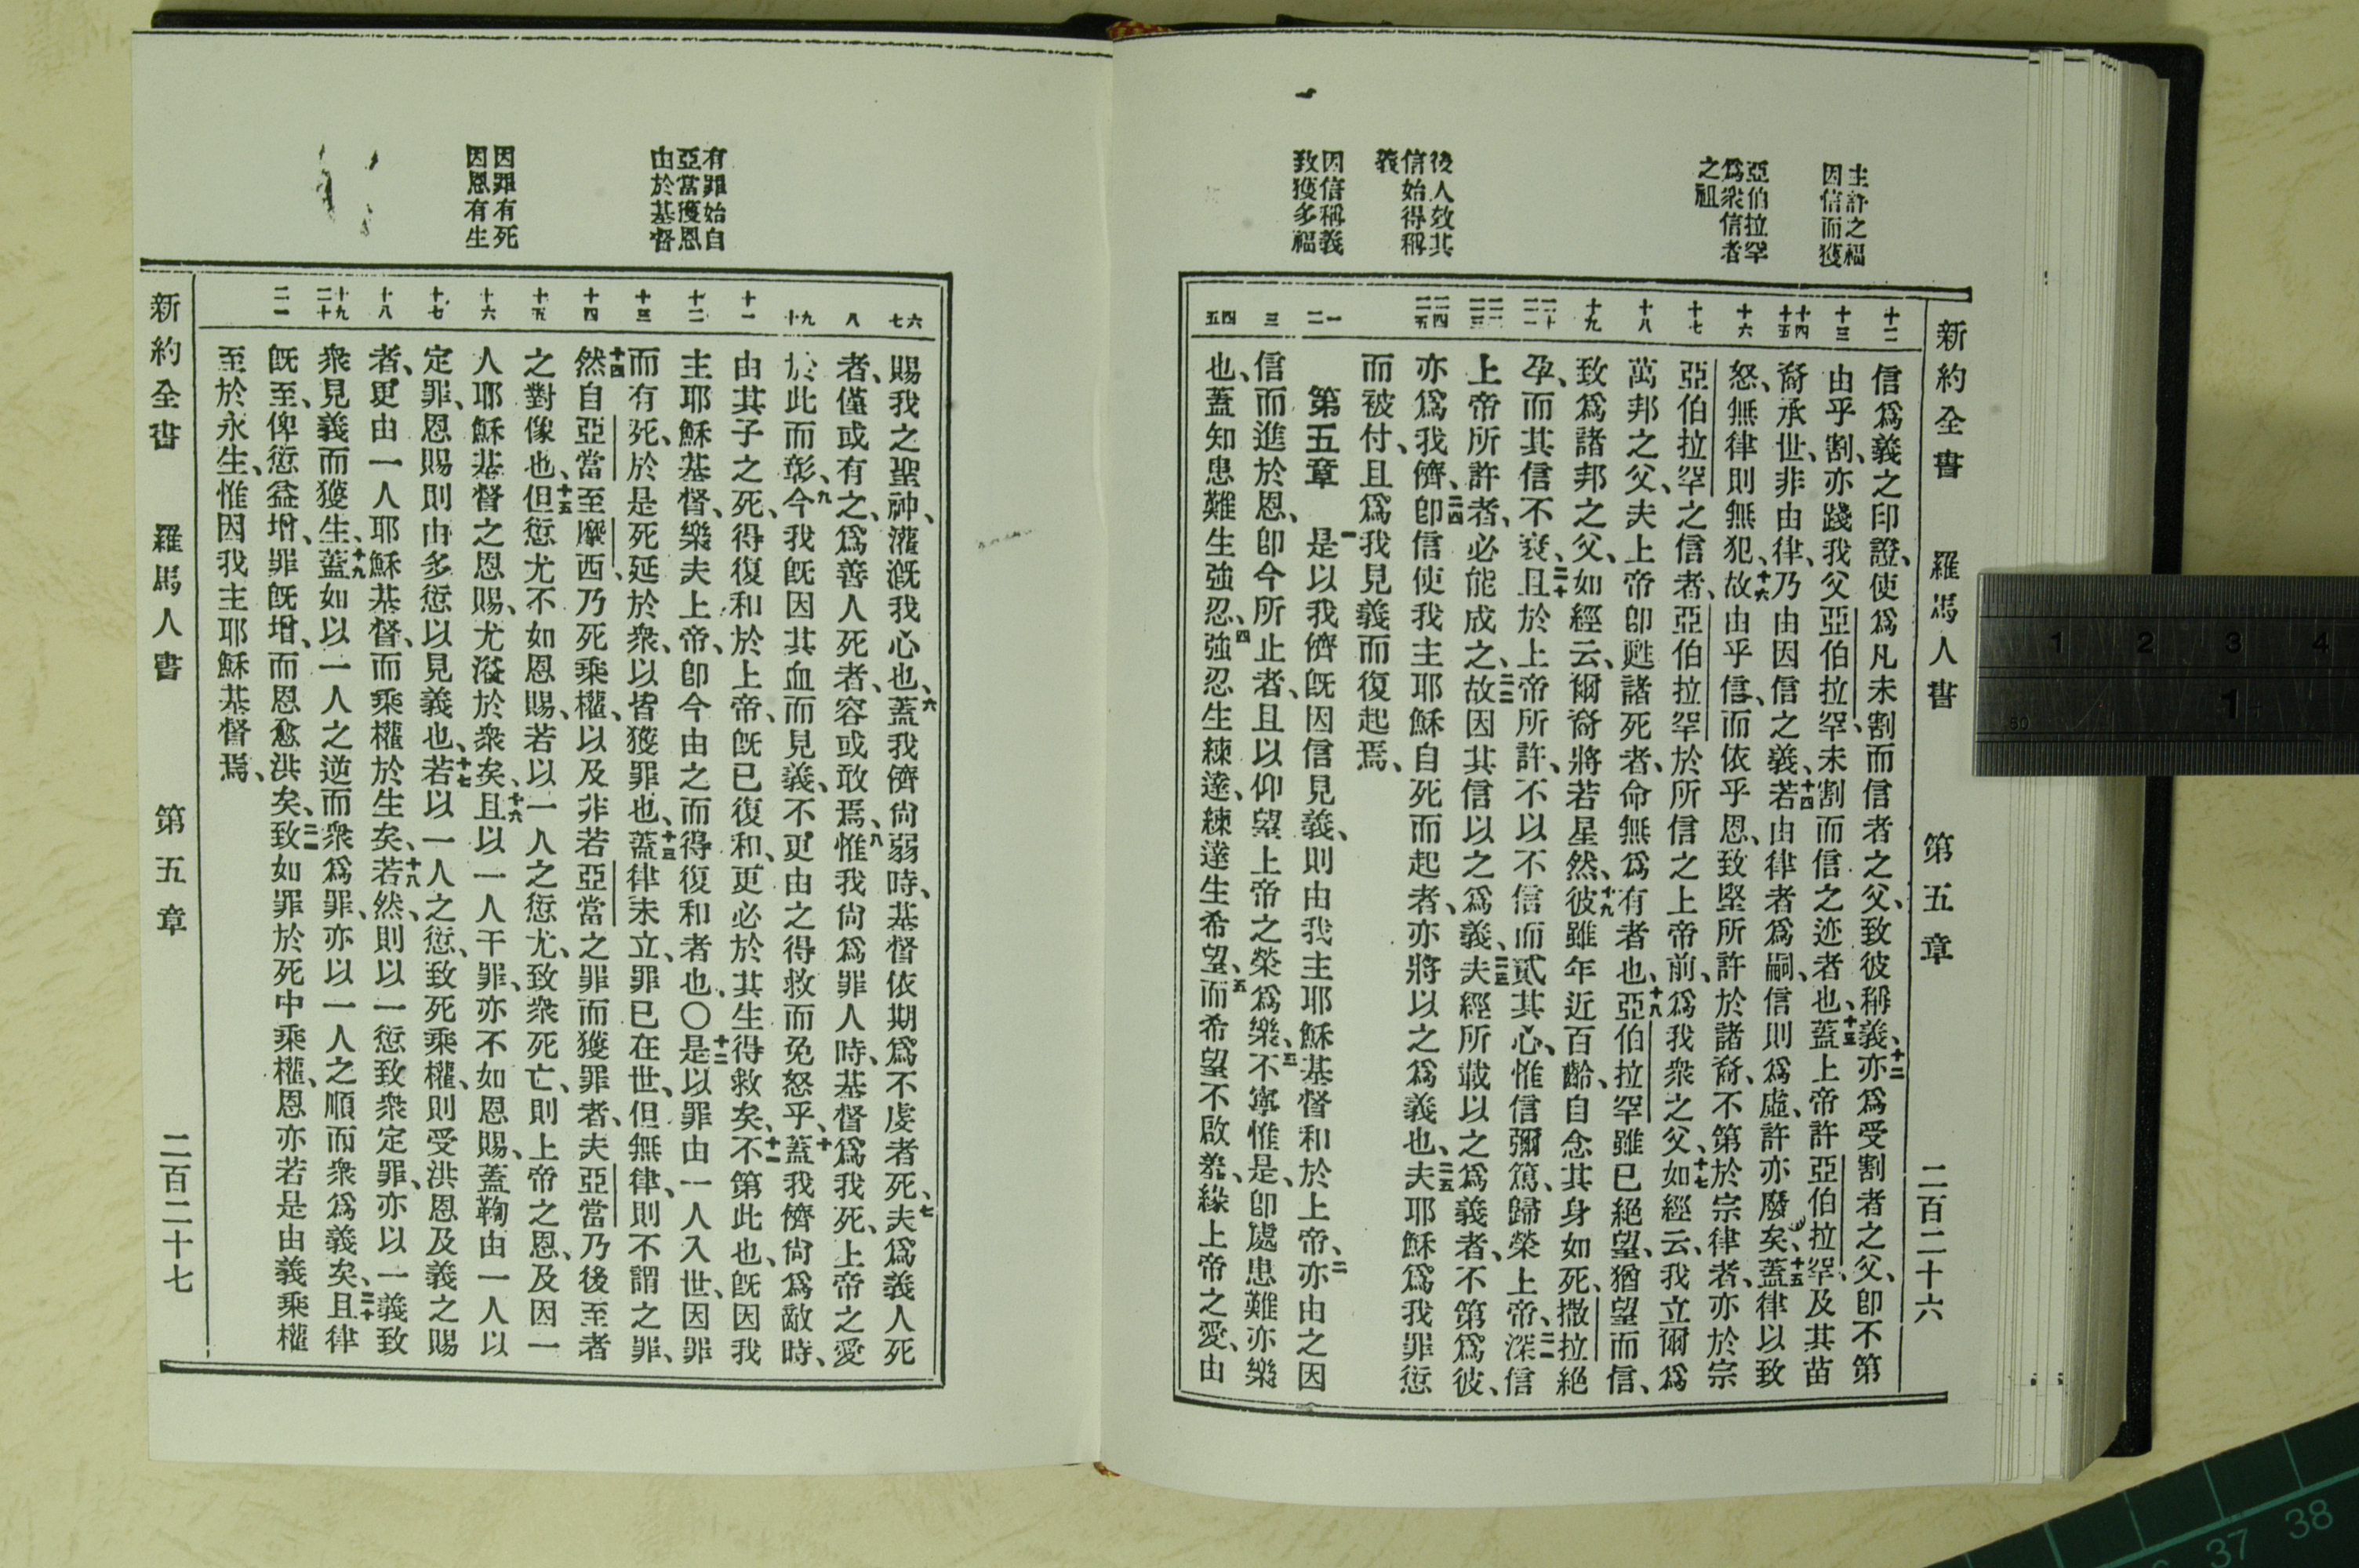 新約全書 羅馬人書 第五章 二百二十六
主許之福
因信而獲
亞伯拉罕
爲衆信者
之祖
後人效其
信始得稱
義
因信稱義
致獲多福
十二
十三
十四
十五
十六
十七
十八
十九
二十
二一
二二
二三
二四
二五
一
二
三
四
五
信爲義之印證、使爲凡未割而信者之父、致彼稱義、十二亦爲受割者之父、卽不第
由乎割、亦踐我父亞伯拉罕、未割而信之迹者也、十三蓋上帝許亞伯拉罕、及其苗
裔承世、非由律、乃由因信之義、十四若由律者爲嗣、信則爲虛、許亦廢矣、十五蓋律以致
怒、無律則無犯、十六故由乎信、而依乎恩、致堅所許於諸裔、不第於宗律者、亦於宗
亞伯拉罕之信者、亞伯拉罕於所信之上帝前、爲我衆之父、十七如經云、我立爾爲
萬邦之父、夫上帝卽甦諸死者、命無爲有者也、十八亞伯拉罕雖已絕望、猶望而信、
致爲諸邦之父、如經云、爾裔將若星然、十九彼雖年近百齡、自念其身如死、撒拉絕
孕、而其信不衰、二十且於上帝所許、不以不信而貳其心、惟信彌篤、歸榮上帝、二一深信
上帝所許者、必能成之、二二故因其信以之爲義、二三夫經所載以之爲義者、不第爲彼、
亦爲我儕、二四卽信使我主耶穌自死而起者、亦將以之爲義也、二五夫耶穌爲我罪愆
而被付、且爲我見義而復起焉、
第五章 一是以我儕旣因信見義、則由我主耶穌基督和於上帝、二亦由之因
信而進於恩、卽今所止者、且以仰望上帝之榮爲樂、三不寧惟是、卽處患難亦樂
也、蓋知患難生強忍、四強忍生練達、練達生希望、五而希望不啟羞、緣上帝之愛、由
有罪始自
亞當獲恩
由於基督
因罪有死
因恩有生
六
七
八
九
十
十一
十二
十三
十四
十五
十六
十七
十八
十九
二十
二一
賜我之聖神、灌漑我心也、六蓋我儕尙弱時、基督依期爲不虔者死、七夫爲義人死
者、僅或有之、爲善人死者、容或敢焉、八惟我尙爲罪人時、基督爲我死、上帝之愛
於此而彰、九今我旣因其血而見義、不更由之得救而免怒乎、十蓋我儕尙爲敵時、
由其子之死、得復和於上帝、旣已復和、更必於其生得救矣、十一不第此也、旣因我
主耶穌基督、樂夫上帝、卽今由之而得復和者也、〇十二是以罪由一人入世、因罪
而有死、於是死延於衆、以皆獲罪也、十三蓋律未立、罪已在世、但無律、則不謂之罪、
十四然自亞當至摩西、乃死乘權、以及非若亞當之罪而獲罪者、夫亞當乃後至者
之對像也、十五但愆尤不如恩賜、若以一人之愆尤、致衆死亡、則上帝之恩、及因一
人耶穌基督之恩賜、尤溢於衆矣、十六且以一人干罪、亦不如恩賜、蓋鞫由一人以
定罪、恩賜則由多愆以見義也、十七若以一人之愆、致死乘權、則受洪恩及義之賜
者、更由一人耶穌基督、而乘權於生矣、十八若然、則以一愆致衆定罪、亦以一義致
衆見義而獲生、十九蓋如以一人之逆而衆爲罪、亦以一人之順而衆爲義矣、二十且律
旣至、俾愆益增、罪旣增、而恩愈洪矣、二一致如罪於死中乘權、恩亦若是由義乘權
至於永生、惟因我主耶穌基督焉、
新約全書 羅馬人書 第五章 二百二十七
1 2 3 4
50
1
37 38